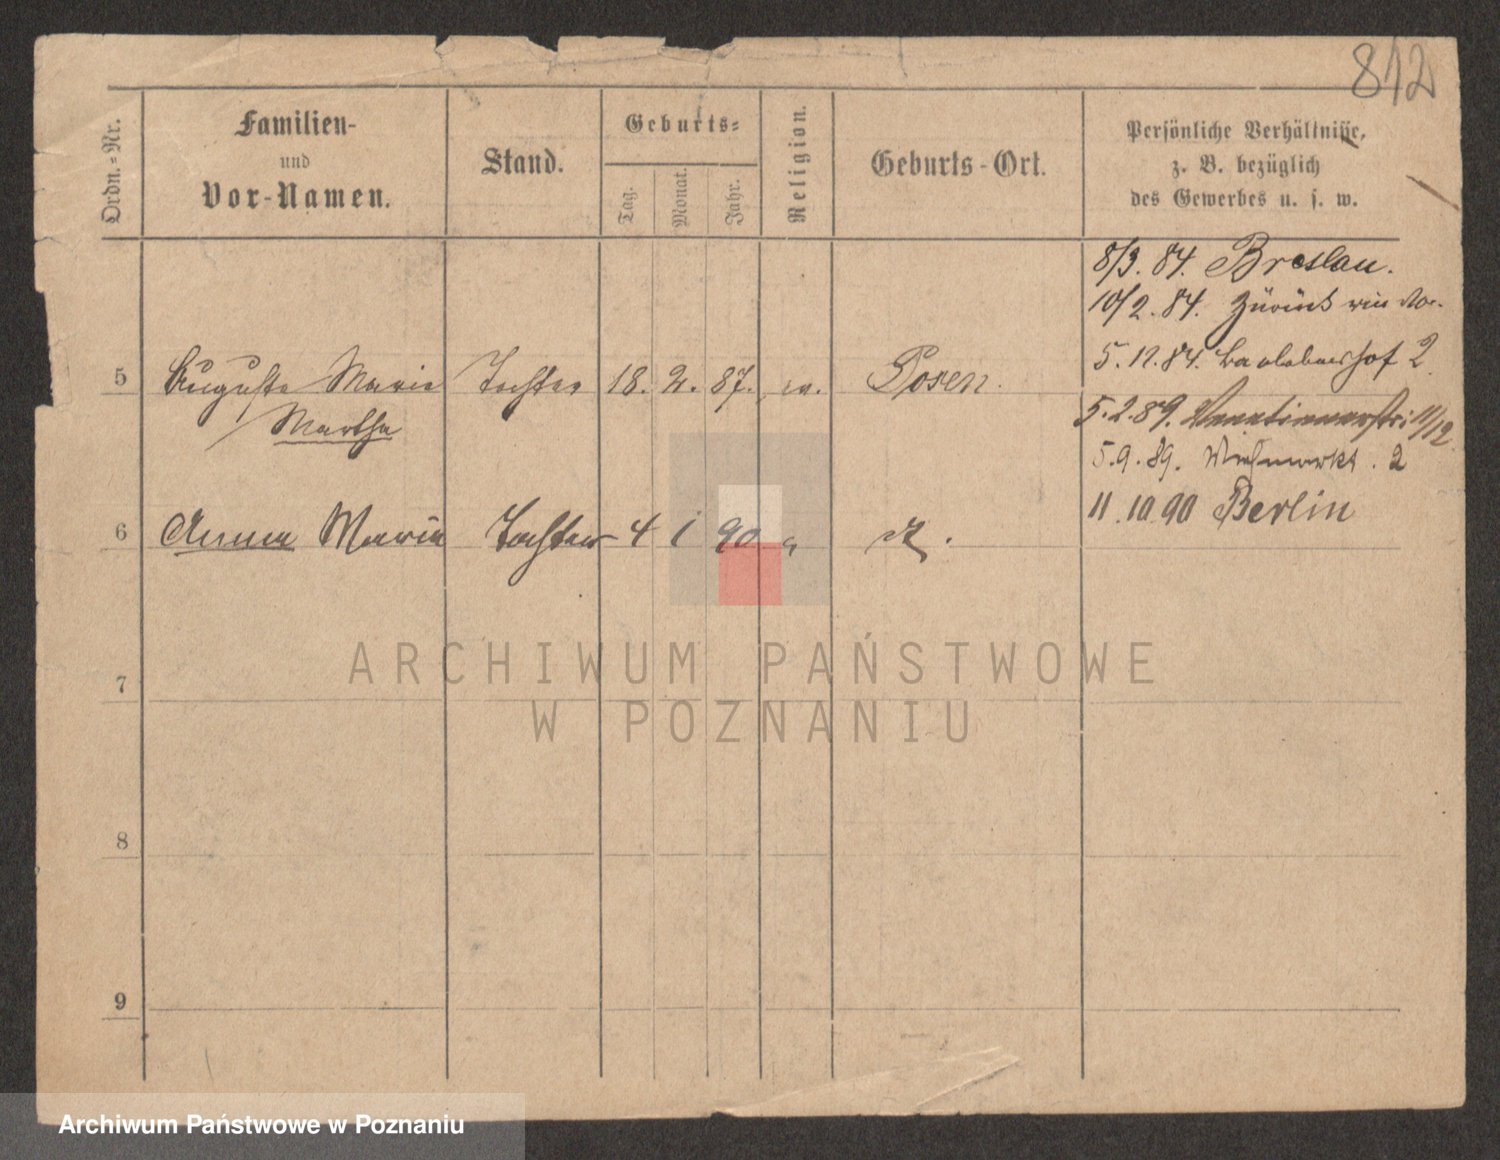 812
Ordn.-Nr.
Familien-
und
Vor-Namen.
Stand.
Geburts-
Tag.
Monat.
Jahr.
Religion.
Geburts-Ort.
Persönliche Verhältnisse,
z. B. bezüglich
des Gewerbes u. s. w.
8/3. 84. Breslau.
10/2. 84. Zurück
5. 12. 84. 2.
5 Auguste Marie Tochter 18. 2. 87. Posen.
Martha
5. 2. 89. Venetianerstr: 11/12
5. 9. 89. 2
11. 10. 90 Berlin
6 Anna Maria Tochter 4 1 90
7
8
9
ARCHIWUM PAŃSTWOWE
W POZNANIU
Archiwum Państwowe w Poznaniu